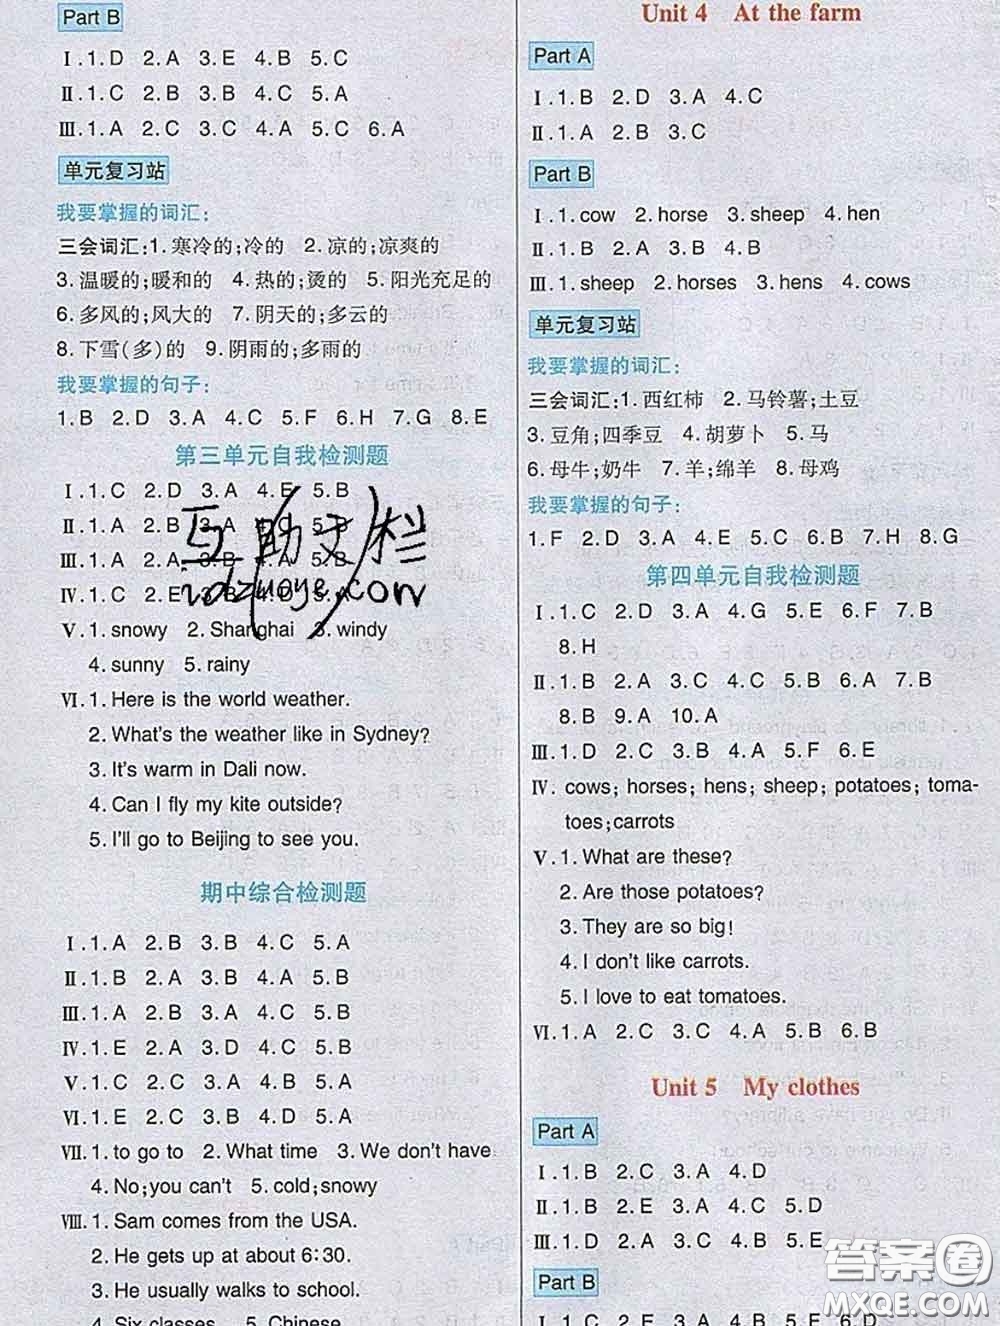 Part B
Ⅰ.1.D 2.A 3.E 4.B 5.C
Ⅱ.1.C 2.B 3.B 4.C 5.A
Ⅲ.1.A 2.C 3.C 4.A 5.C 6.A
单元复习站
我要掌握的词汇:
三会词汇:1.寒冷的;冷的 2.凉的;凉爽的
3.温暖的;暖和的 4.热的;烫的 5.阳光充足的
6.多风的;风大的 7.阴天的;多云的
8.下雪(多)的 9.阴雨的;多雨的
我要掌握的句子:
1.B 2.D 3.A 4.C 5.F 6.H 7.G 8.E
第三单元自我检测题
Ⅰ.1.C 2.D 3.A 4.E 5.B
Ⅱ.1.A 2.B 3.A 4.C 5.B
Ⅲ.1.A 2.B 3.A 4.A 5.B
Ⅳ.1.C 2.E 3.B 4.D 5.A
Ⅴ.1.snowy 2.Shanghai 3.windy
4.sunny 5.rainy
Ⅵ.1.Here is the world weather.
2.What's the weather like in Sydney?
3.It's warm in Dali now.
4.Can I fly my kite outside?
5.I'll go to Beijing to see you.
期中综合检测题
Ⅰ.1.A 2.B 3.B 4.C 5.A
Ⅱ.1.B 2.B 3.A 4.C 5.B
Ⅲ.1.A 2.A 3.A 4.C 5.B
Ⅳ.1.E 2.A 3.D 4.C 5.B
Ⅴ.1.C 2.C 3.B 4.A 5.C
Ⅵ.1.E 2.C 3.B 4.D 5.A
Ⅶ.1.to go to 2.What time 3.We don't have
4.No;you can't 5.cold;snowy
Ⅷ.1.Sam comes from the USA.
2.He gets up at about 6:30.
3.He usually walks to school.
4.Six classes. 5.Chinese.
Unit 4 At the farm
Part A
Ⅰ.1.B 2.D 3.A 4.C
Ⅱ.1.A 2.B 3.C
Part B
Ⅰ.1.cow 2.horse 3.sheep 4.hen
Ⅱ.1.B 2.A 3.B 4.B
Ⅲ.1.sheep 2.horses 3.hens 4.cows
单元复习站
我要掌握的词汇:
三会词汇:1.西红柿 2.马铃薯;土豆
3.豆角;四季豆 4.胡萝卜 5.马
6.母牛;奶牛 7.羊;绵羊 8.母鸡
我要掌握的句子:
1.F 2.D 3.A 4.E 5.C 6.B 7.H 8.G
第四单元自我检测题
Ⅰ.1.C 2.D 3.A 4.G 5.E 6.F 7.B
8.H
Ⅱ.1.B 2.A 3.A 4.B 5.B 6.A 7.B
8.B 9.A 10.A
Ⅲ.1.D 2.C 3.B 4.A 5.F 6.E
Ⅳ.cows; horses; hens; sheep; potatoes; toma-
toes;carrots
Ⅴ.1.What are these?
2.Are those potatoes?
3.They are so big!
4.I don't like carrots.
5.I love to eat tomatoes.
Ⅵ.1.A 2.C 3.C 4.A 5.B 6.B
Unit 5 My clothes
Part A
Ⅰ.1.B 2.C 3.A 4.D
Ⅱ.1.B 2.A 3.E 4.C 5.D
Ⅲ.1.D 2.B 3.A 4.C 5.E
Part B
互助文栏
答案圈
MXQE.COM